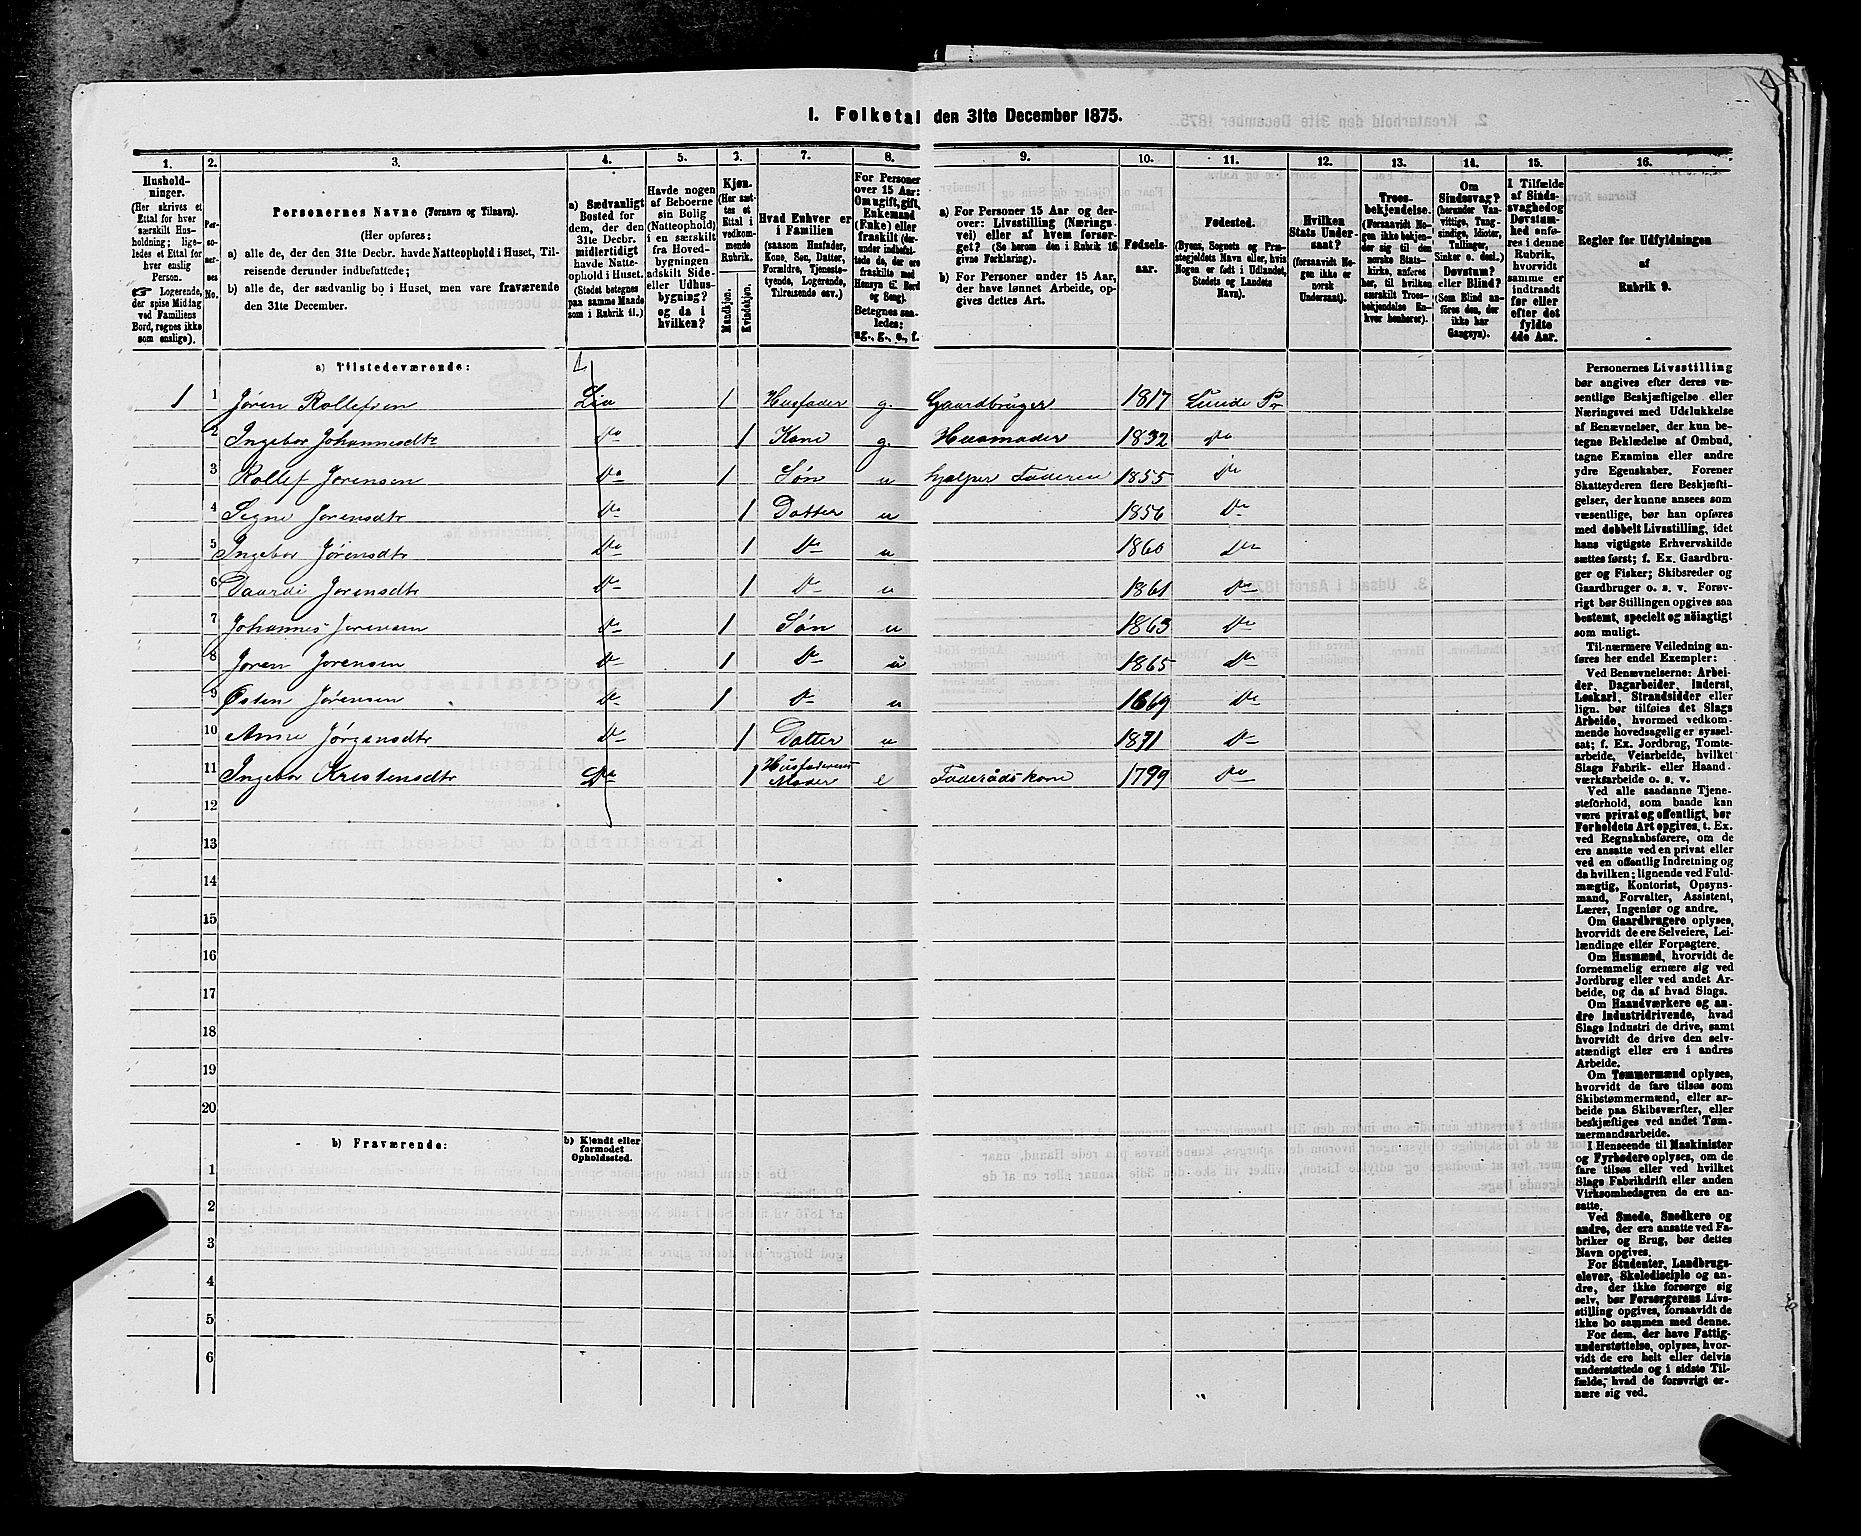 1. Folketal den 31te December 1875.
1. 2. 3. 4. 5. 6. 7. 8. 9. 10. 11. 12. 13. 14. 15. 16.
Hushold-
ninger.
(Her skrives et
Ettal for hver
særskilt Hus-
holdning; lige-
ledes et Ettal
for hver enslig
Person.
☞ Logerende,
der spise Middag
ved Familiens
Bord, regnes ikke
som enslige).
Per-
so-
ner-
nes
No.
Personernes Navne (Fornavn og Tilnavn).
(Her opføres:
a) alle de, der den 31te Decbr. havde Natteophold i Huset, Til-
reisende derunder indbefattede;
b) alle de, der sædvanlig bo i Huset, men vare fraværende
den 31te December.
a) Sædvanligt
Bosted for
dem, der den
31te Decbr.
midlertidigt
havde Natte-
ophold i Huset.
(Stedet betegnes
paa samme Maade
som i Rubrik 11.)
Havde nogen
af Beboerne
sin Bolig
(Natteophold)
i en særskilt
fra Hoved-
bygningen
adskilt Side-
eller Udhus-
bygning?
og da i
hvilken?
Kjøn.
(Her sæt-
tes et
Ettal i
vedkom-
mende
Rubrik.
Mandkjøn.
Kvindekjøn.
Hvad Enhver er
i Familien
(saasom Husfader,
Kone, Søn, Datter,
Forældre, Tjeneste-
tyende, Logerende,
Tilreisende osv.)
For Personer
over 15 Aar:
Om ugift, gift,
Enkemand
(Enke) eller
fraskilt (der-
under indbefat-
tede de, der ere
fraskilte med
Hensyn til Bord
og Seng).
Betegnes saa-
ledes:
ug., g., e., f.
a) For Personer 15 Aar og der-
over: Livsstilling (Nærings-
vei) eller af hvem forsør-
get? (Se herom den i Rubrik 16
givne Forklaring).
b) For Personer under 15 Aar,
der have lønnet Arbeide, op-
gives dettes Art.
Fødsels-
aar.
Fødested.
(Byens, Sognets og Præ-
stegjeldets Navn eller, hvis
Nogen er født i Udlandet,
Stedets og Landets
Navn).
Hvilken
Stats Under-
saat?
(forsaavidt No-
gen ikke er
norsk
Undersaat).
Troes-
bekjendelse.
(Forsaavidt No-
gen ikke bekjen-
der sig til den
norske Stats-
kirke, anføres
her, til hvilken
særskilt Troes-
bekjendelse En-
hver henhører).
Om
Sindssvag?
(herunder Van-
vittige, Tung-
sindige, Idioter,
Tullinger,
Sinker o. desl.)
Døvstum?
eller Blind?
(Som Blind an-
føres den, der
ikke har
Gangsyn).
I Tilfælde
af Sinds-
svaghed og
Døvstum-
hed anfø-
res i denne
Rubrik,
hvorvidt
samme er
indtraadt
før eller
efter det
fyldte
4de Aar.
Regler for Udfyldningen
af
Rubrik 9.
a) Tilstedeværende:
1 1 Jøren Rollefsen Lia 1 Husfader g. Gaardbruger 1817 Lunde Pr
2 Ingebor Johannesdtr Do 1 Kone g. Huusmoder 1832 Do
3 Rollef Jørensen Do 1 Søn u hjælper Faderen 1855 Do
4 Signe Jørensdtr Do 1 Datter u 1856 Do
5 Ingebor Jørensdtr Do 1 Do u 1860 Do
6 Jørensdtr Do 1 Do u 1861 Do
7 Johannes Jørensen Do 1 Søn u 1863 Do
8 Jøren Jørensen Do 1 Do u 1865 Do
9 Østen Jørensen Do 1 Do u 1869 Do
10 Anne Jørgensdtr Do 1 Datter u 1871 Do
11 Ingebor Kristensdtr Do 1 Husfaderens Moder e Føderådskone 1799 Do
12
13
14
15
16
17
18
19
20
b) Fraværende:
b) Kjendt eller
formodet
Opholdssted.
1
2
3
4
5
6
Personernes Livsstilling
bør angives efter deres væ-
sentlige Beskjæftigelse eller
Næringsvei med Udelukkelse
af Benævnelser, der kun be-
tegne Beklædelse af Ombud,
tagne Examina eller andre
ydre Egenskaber. Forener
Skatteyderen flere Beskjæfti-
gelser, der kunne ansees som
væsentlige, bør han opføres
med dobbelt Livsstilling, idet
hans vigtigste Erhvervskilde
sættes først; f. Ex. Gaardbru-
ger og Fisker; Skibsreder og
Gaardbruger o. s. v. Forøv-
rigt bør Stillingen opgives saa
bestemt, specielt og nøiagtigt
som muligt.
Til nærmere Veiledning an-
føres her endel Exempler:
Ved Benævnelserne: Arbei-
der, Dagarbeider, Inderst,
Løskarl, Strandsidder eller
lign. bør tilføies det Slags
Arbeide, hvormed vedkom-
mende hovedsagelig er syssel-
sat; f. Ex. Jordbrug, Tomte-
arbeide, Veiarbeide, hvilket
Slags Fabrik- eller Haand-
værksarbeide o. s. v.
Ved alle saadanne Tjene-
steforhold, som baade kan
være privat og offentligt, bør
Forholdets Art opgives, f. Ex.
ved Regnskabsførere, om de
ere ansatte ved en privat eller
ved en offentlig Indretning og
da hvilken; lignende ved Fuld-
mægtig, Kontorist, Opsyns-
mand, Forvalter, Assistent,
Lærer, Ingeniør og andre.
Om Gaardbrugere oplyses,
hvorvidt de ere Selveiere, Lei-
lændinge eller Forpagtere.
Om Husmænd, hvorvidt de
fornemmelig ernære sig ved
Jordbrug eller ved andet Ar-
beide, og da af hvad Slags.
Om Haandværkere og an-
dre Industridrivende, hvad
Slags Industri de drive, samt
hvorvidt de drive den selv-
stændigt eller ere i andres
Arbeide.
Om Tømmermænd oplyses,
hvorvidt de fare tilsøs som
Skibstømmermænd, eller ar-
beide paa Skibsværfter, eller
beskjæftiges ved andet Tøm-
mermandsarbeide.
I Henseende til Maskinister
og Fyrbødere oplyses, om de
fare tilsøs eller ved hvilket
Slags Fabrikdrift eller anden
Virksomhedsgren de ere an-
satte.
Ved Smede, Snedkere og
andre, der ere ansatte ved Fa-
briker og Brug, bør dettes
Navn opgives.
For Studenter, Landbrugs-
elever, Skoledisciple og an-
dre, der ikke forsørge sig
selv, bør Forsørgerens Livs-
stilling opgives, forsaavidt de
ikke bo sammen med denne.
For dem, der have Fattig-
understøttelse, oplyses, hvor-
vidt de ere helt eller delvis
understøttede og i sidste Til-
fælde, hvad de forøvrigt er-
nære sig ved.